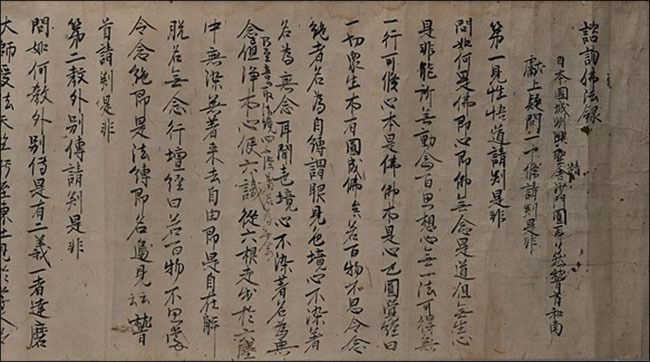 佛法錄
日本國城州興聖寺沙門圓耳稽首和南
獻上疑問一十條請判是非
第一見性悟道請判是非
問如何是佛即心即佛無念是道但無生心
是非能所無動念百思想心無一法可得無
一行可修心本是佛佛本是心也圓覺經曰
一切衆生本有圓成佛矣若百物不思令念
絶者名為自縛謂眼見色境心不染著
名為無念耳聞声境心不染著名為無
念但淨本心使六識從六根走出於六塵
中無染無著来去自由即是自在解
脱名無念行壇經曰若百物不思當
令念絶即是法縛即名邊見
首請判是非
第二教外別傳請判是非
問如何教外別傳是有二義一者達磨
大師受法天竺至東土